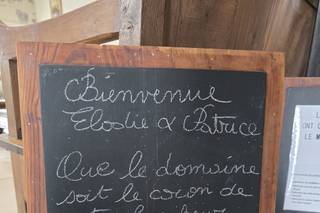 Bienvenue
Elodie & Patrice
Que le domaine
soit le cocon de
L
ONT C
LE M